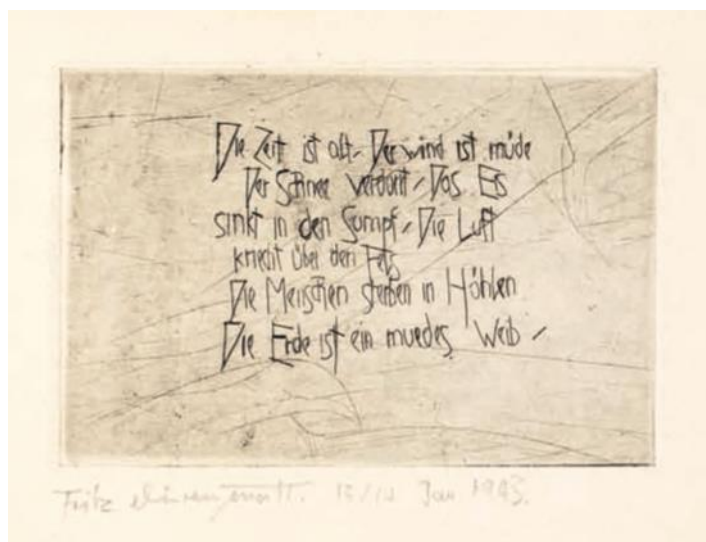 Die Zeit ist alt / Der Wind ist müde
Der Schnee verdorrt / Das Eis
sinkt in den Sumpf / Die Luft
kriecht über den Fels
Die Menschen sterben in Höhlen
Die Erde ist ein muedes Weib /
Fritz Jan 1943.